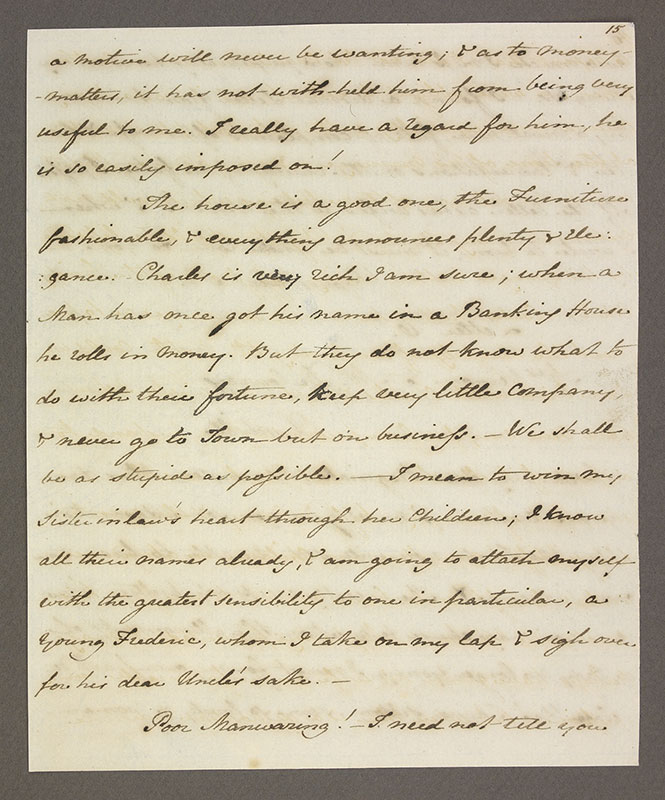 15
a motive will never be wanting; & as to money-
-matters, it has not with-held him from being very
useful to me. I really have a regard for him, he
is so easily imposed on!
The house is a good one, the Furniture
fashionable, & everything announces plenty & Ele:
:gance. Charles is very rich I am sure; when a
Man has once got his name in a Banking House
he rolls in money. But they do not know what to
do with their fortune, keep very little Company,
& never go to Town but on business. – We shall
be as stupid as possible. — I mean to win my
Sister inlaw's heart through her Children; I know
all their names already, & am going to attach myself
with the greatest sensibility to one in particular, a
young Frederic, whom I take on my lap & sigh over
for his dear Uncle's sake. –
Poor Manwaring! – I need not tell you